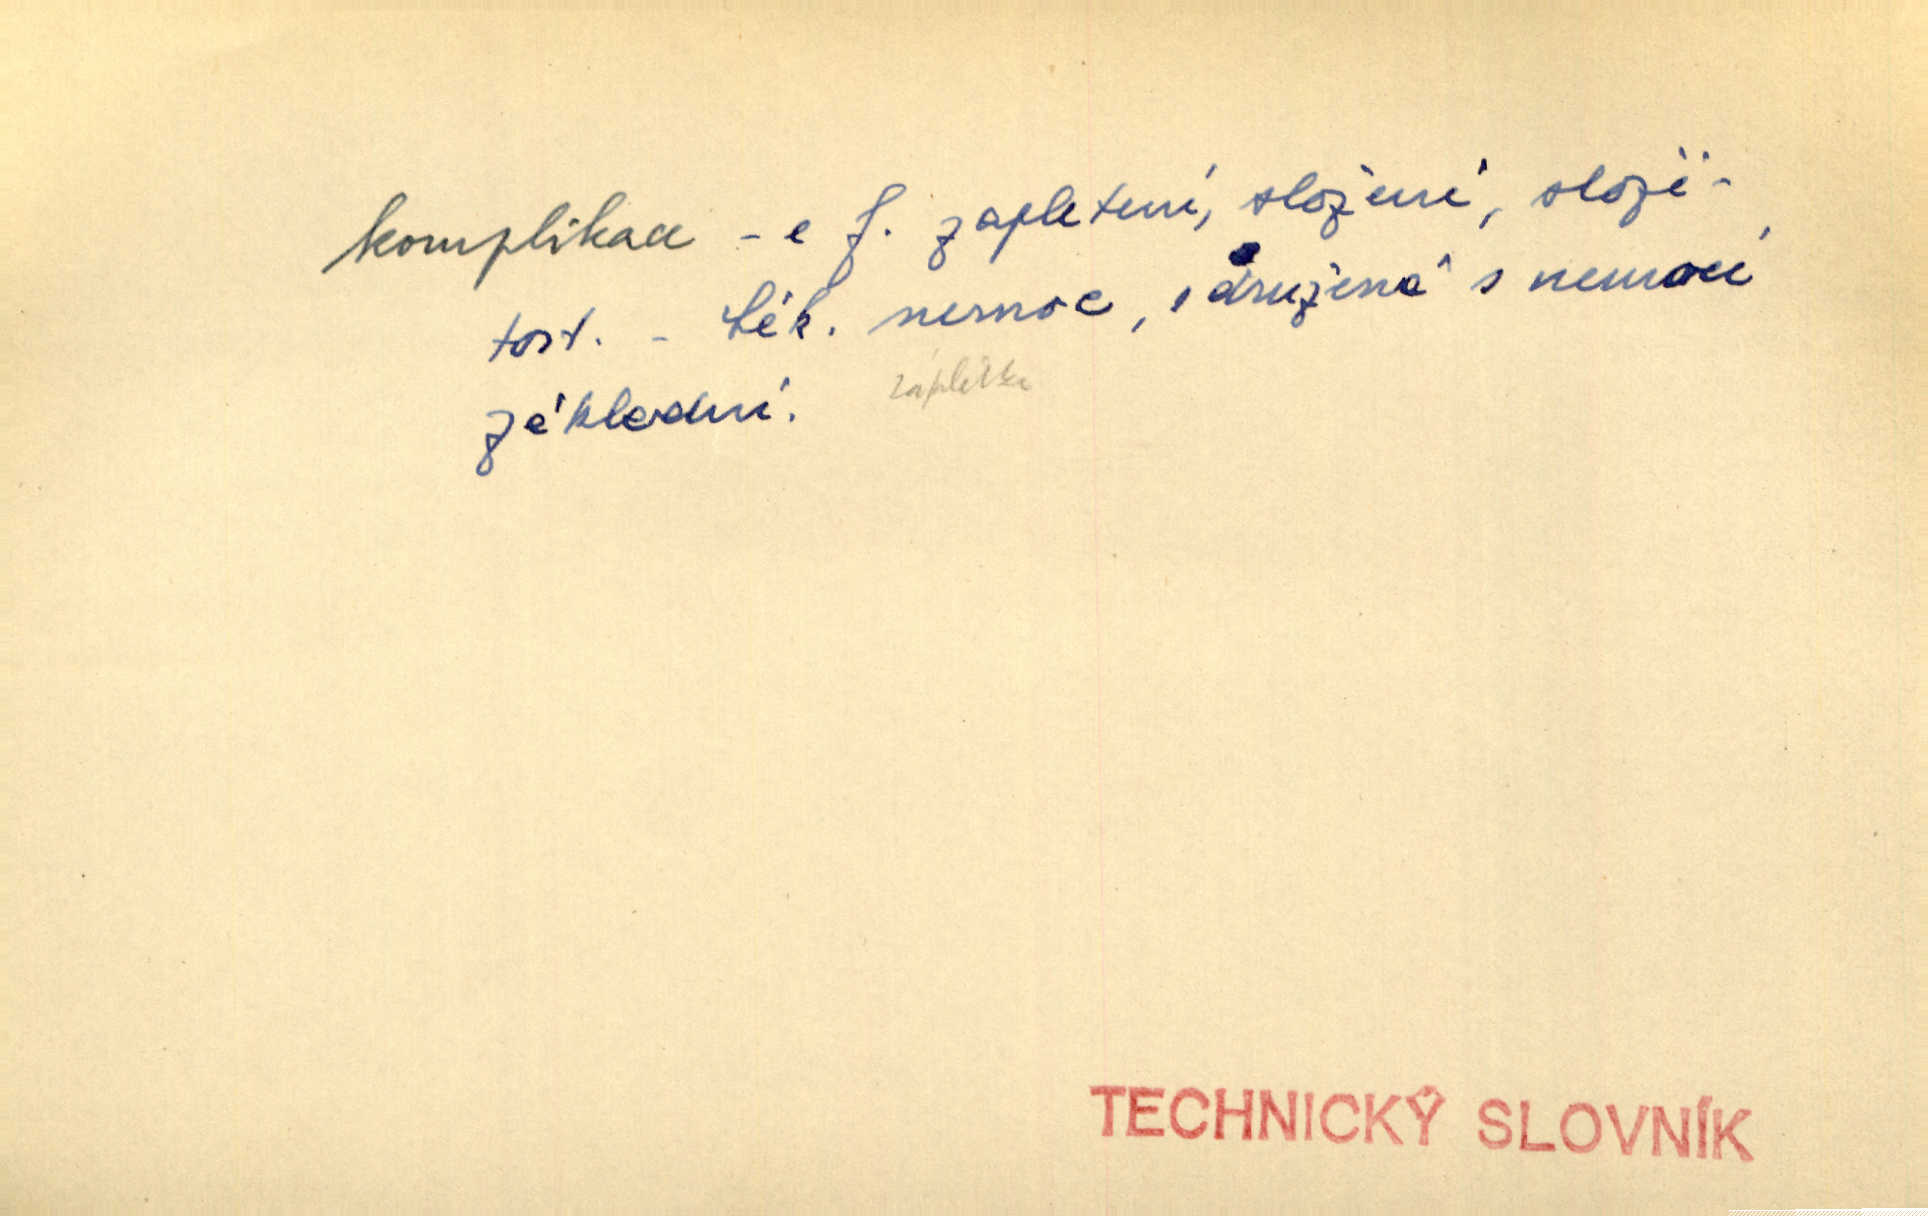 komplikace -e f. zapletení, složení, složi-
tost. - Lék. nemoc, sdružená s nemocí
základní.
zápletka
TECHNICKÝ SLOVNÍK